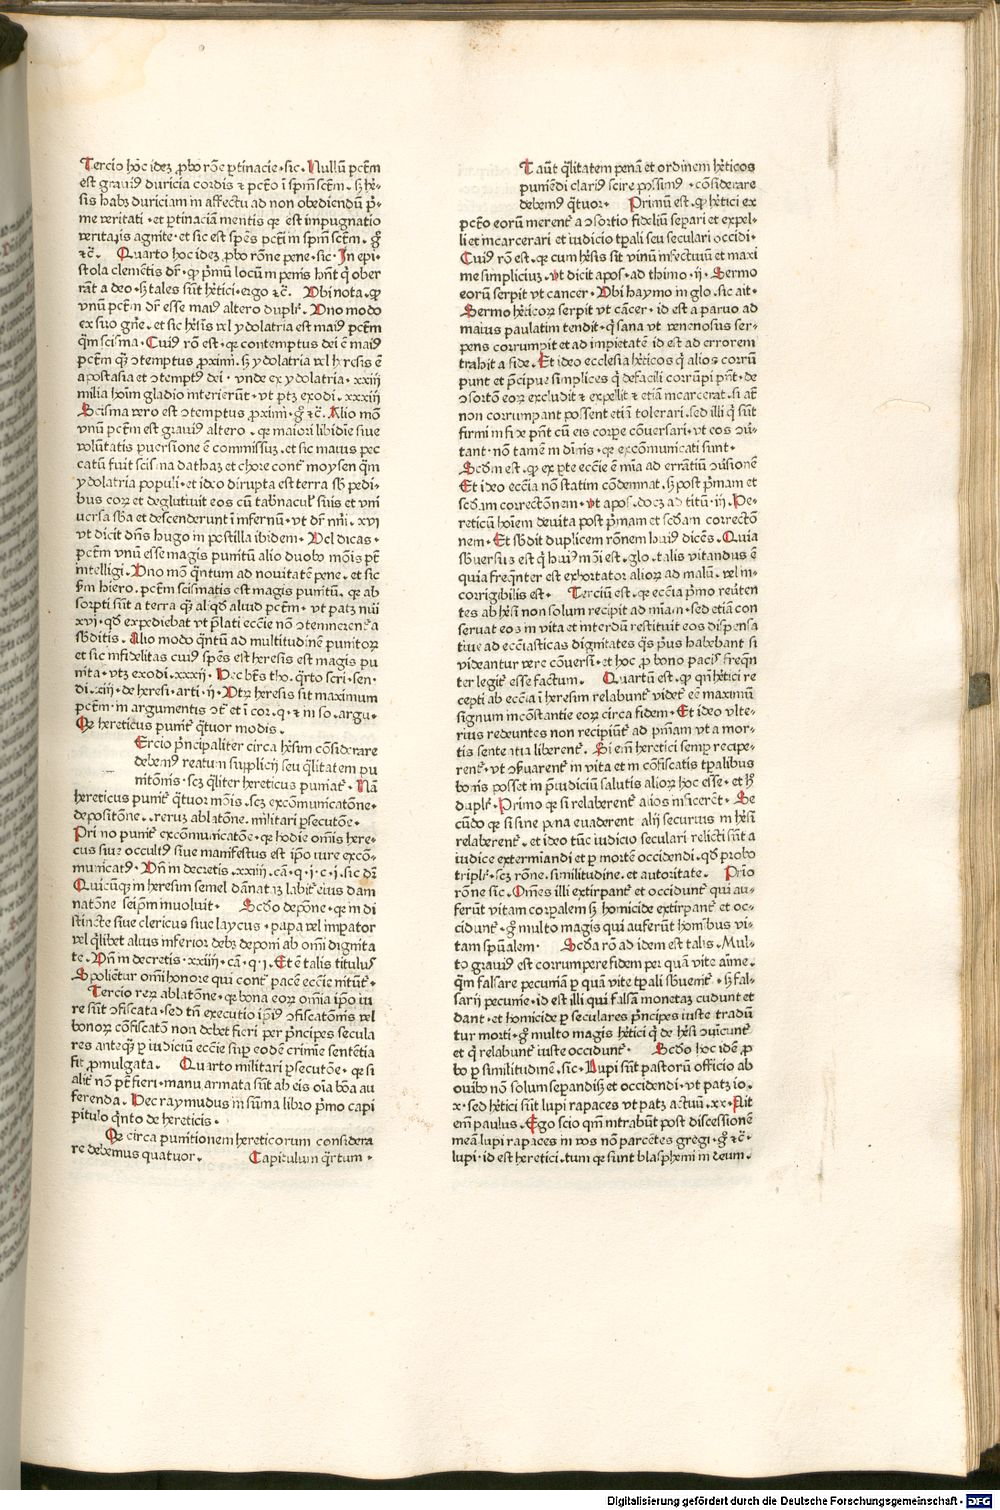 Tercio hoc idez ꝓbo rōe ꝑtinacie · sic · Nullū pctm̄
est graviꝰ duricia cordis ⁊ pctō ī spm̄ sctm̄ · sꝫ he-
sis habꝫ duriciam in affectu ad non obediendū p̄-
me veritati · et ꝑtinaciā mentis que est impugnatio
veritatis agnite · et sic est spēs pcti in spm̄ sctm̄ · gͦ
⁊c̄ · Quarto hoc idez ꝓbo rōne pene · sic · In epi-
stola clementis dr̄ · ꝙ pͥmū locū in penis hn̄t qͥ ober
rāt a deo · sꝫ tales sūt hētici · ergo ⁊c̄ · Ubi nota · ꝙ
vnū pctm̄ dr̄ esse maiꝰ altero duplr̄ · Uno modo
ex suo gn̄e · et sic hēsis vel ydolatria est maiꝰ pctm̄
qͫ scisma · Cuiꝰ rō est · qꝛ contemptus dei ē maiꝰ
pctm̄ qͫ ꝯtemptus ꝓximi · sꝫ ydolatria vel hēsis ē
apostasia et ꝯtemptꝰ dei · vnde ex ydolatria · xxiij
milia hoīm gladio interierūt · vt ptꝫ exodi · xxxiij
Scisma vero est ꝯtemptus ꝓximi · gͦ ⁊c̄ · Alio mō
vnū pctm̄ est graviꝰ altero · qꝛ maiori libidīe sive
volūtatis pversione ē commissuꝫ · et sic maius pec
catū fuit scisma dathaꝫ et chore contͣ moysen qͫ
ydolatria populi · et ideo dirupta est terra sb̄ pedi-
bus eoꝝ et deglutivit eos cū tab̄naculꝭ suis et vni
versa sb̄a et descenderunt ī infernū · vt dr̄ nūi · xvi
vt dicit dn̄s hugo in postilla ibidem · Vel dicas ·
pctm̄ vnū esse magis punitū alio duobꝰ mōis pt̄
intelligi · Uno mō qͣntum ad novitatē pene · et sic
ẜm hiero · pctm̄ scismatis est magis punitū · qꝛ ab
sorpti sūt a terra qͣꝫ alqd̄ aliud pctm̄ · vt patꝫ nūi
xvi · qd̄ expediebat vt p̄lati eccīe nō ꝯtemnerent̄ a
sb̄ditis · Alio modo qͣntū ad multitudinē punitoꝝ
et sic infidelitas cuiꝰ spēs est heresis est magis pu
nita · vtꝫ exodi · xxxij · Hec bt̄s tho · qͣrto scri · sen ·
di · xiij · de heresi · arti · ij · Utꝝ heresis sit maximum
pctm̄ · in argumentis ꝯt̄ et ī cor · q · ⁊ in so · argu ·
Qꝛ hereticus punit̄ qͣtuor modis ·
Ercio pͥncipaliter circa hēsim cōsiderare
debemꝰ reatum supplicij seu qͣlitatem pu
nitōnis · scꝫ qͣliter hereticus puniat̄ · Nā
hereticus punit̄ qͣtuor mōis · scꝫ excōmunicatōne ·
depositōne · reruꝫ ablatōne · militari ꝑsecutōe ·
Primo punit̄ excōmunicatōne · qꝛ hodie omīs here-
cus sive occultꝰ sive manifestus est ip̄o iure excō-
municatꝰ · Vn̄ in decretis · xxiiij · cā · q · i · c · i · sic dr̄
Quicūqꝫ in heresim semel dānatā labit̄ eius dam
natōne seip̄m involvit · Scd̄o depōne · qꝛ in di
stincte sive clericus sive laycus · papa vel impator
vel qͥlibet alius inferior debꝫ deponi ab omī dignita
te · Vn̄ in decretis · xxiiij · cā · q · i · Et ē talis titulus
Spolient̄ omī honore qui contͣ pacē eccīe nitūt̄ ·
Tercio reꝝ ablatōne · qꝛ bona eoꝝ omīa ip̄o iu
re sūt ꝯfiscata · sed tn̄ executio ip̄iꝰ ꝯfiscatōnis vel
bonoꝝ cōfiscatō non debet fieri per pͥncipes secula
res anteqͣꝫ ꝑ iudiciū eccīe suꝑ eodē crimīe sentētia
fit ꝓmulgata · Quarto militari ꝑsecutōe · qꝛ si
alit̄ nō pt̄ fieri · manu armata sūt ab eis oīa bōa au
ferenda · Hec raymudus in sūma libro pͥmo capi
pitulo qͥnto de hereticis ·
Qꝛ circa punitionem hereticorum considera
re debemus quatuor · Capitulum qͣrtum ·
Taūt qͣlitatem penā et ordinem hēticos
puniēdi clariꝰ scire possimꝰ · cōsiderare
debemꝰ qͣtuor · Primū est · ꝙ hētici ex
pctō eorū merent̄ a ꝯsortio fideliū separi et expel-
li et incarcerari et iudicio tꝑali seu seculari occidi ·
Cuiꝰ rō est · qꝛ cum hēsis sit vinū infectivū et maxi
me simpliciuꝫ · vt dicit apos · ad thimo · ij · Sermo
eorū serpit vt cancer · Ubi haymo in glo · sic ait ·
Sermo hēticoꝝ serpit vt cācer · id est a parvo ad
maius paulatim tendit · qͥ sana vt venenosus ser-
pens corrumpit et ad impietatē id est ad errorem
trahit a fide · Et ideo ecclesia hēticos qͥ alios corrū
punt et pͥcipue simplices qͥ defacili corrūpi pn̄t · de
ꝯsortō eoꝝ excludit ⁊ expellit ⁊ etiā incarcerat · si at̄
non corrumpant possent etiā tolerari · sed illi qͥ sūt
firmi in fide pn̄t cū eis corpe cōversari · vt eos ꝯv̄-
tant · nō tamē in divīs · qꝛ excōmunicati sunt ·
Scd̄m est · ꝙ ex pte eccīe ē mīa ad errātiū ꝯv̄sionē
Et ideo eccīa nō statim cōdemnat · sꝫ post pͥmam et
scd̄am correctōnem · vt apos · docꝫ ad titū · iij · He-
reticū hoīem devita post pͥmam et scd̄am correctō
nem · Et sb̄dit duplicem rōnem huiꝰ dicēs · Quia
sb̄versuꝫ est qͥ huiꝰmōi est · glo · talis vitandus ē
quia freqͣnter est exhortator alioꝝ ad malū · vel in-
corrigibilis est · Terciū est · ꝙ eccīa pͥmo reūten
tes ab hēsi non solum recipit ad mīam · sed etiā con
servat eos in vita et interdū restituit eos dispensa
tīve ad eccīasticas dignitates qͣs pͥus habebant si
videantur vere cōversi · et hoc ꝓ bono pacis freqn̄
ter legit̄ esse factum · Quartū est · ꝙ qn̄ hētici re
cepti ab eccīa ī heresim relabunt̄ videt̄ eē maximū
signum incōstantie eoꝝ circa fidem · Et ideo vlte-
rius redeuntes non recipiūt̄ ad pͥmam vt a mor-
tis sententia liberent̄ · Si em̄ heretici semp̄ recipe-
rent̄ · vt ꝯſvarent̄ in vita et in cōfiscatis tꝑalibus
bonis posset in p̄iudiciū salutis alioꝝ hoc esse · et hͦ
duplr̄ · Primo qꝛ si relaberent̄ alios inficerēt · Se
cūdo qꝛ si sine pena evaderent alij securius in hēsi
relaberent̄ · et ideo tūc iudicio seculari relicti sūt a
iudice exterminandi et ꝑ mortē occidendi · qd̄ probo
triplr̄ · scꝫ rōne · similitudine · et autoritate · Primo
rōne sic · Omēs illi extirpant̄ et occidunt̄ qui au-
ferūt vitam corpalem sꝫ homicide extirpant̄ et oc-
cidunt̄ · gͦ multo magis qui auferūt homībus vi-
tam spūalem · Scd̄a rō ad idem est talis · Mul-
to graviꝰ est corrumpere fidem per quā vite aīme ·
qͫ falsare pecuniā ꝑ quā vite tꝑali sb̄venit̄ · sꝫ fal-
sarij pecunie · id est illi qui falsā monetaꝫ cudunt et
dant · et homicide ꝑ seculares pͥncipes iuste tradū
tur morti · gͦ multo magis hētici qͥ de hēsi ꝯvīcunt̄
et qͥ relabunt̄ iuste occidunt̄ · Scd̄o hoc idē ꝓ
bo ꝑ similitudinē · sic · Lupi sūt pastorū officio ab
ovibꝰ nō solum separandi sꝫ et occidendi · vt patꝫ io ·
x · sed hētici sūt lupi rapaces vt patꝫ actuū · xx · Ait
em̄ paulus · Ego scio qm̄ intrabūt post discessionē
meā lupi rapaces in vos nō parcētes gregi · gͦ ⁊c̄ ·
lupi · id est heretici · tum qꝛ sunt blasphemi in deum ·
Digitalisierung gefördert durch die Deutsche Forschungsgemeinschaft - DFG